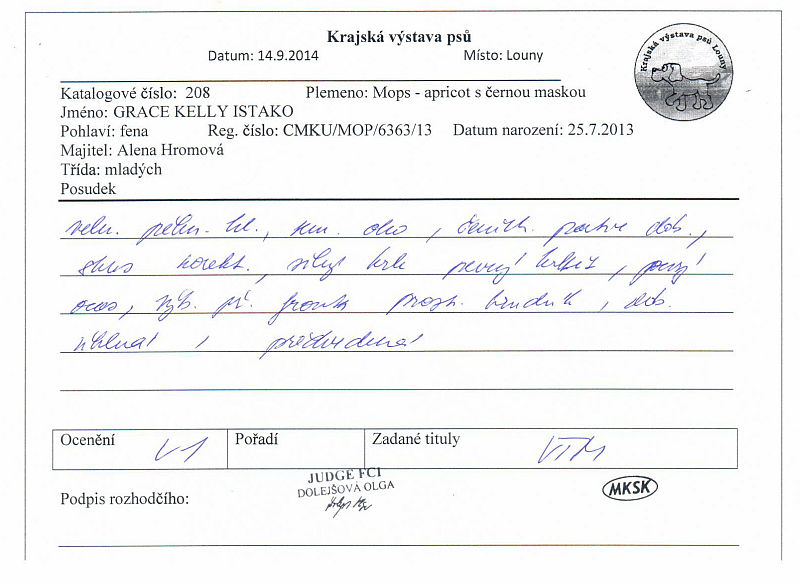 Krajská výstava psů
Datum: 14.9.2014 Místo: Louny
Krajská výstava psů Louny
Katalogové číslo: 208 Plemeno: Mops - apricot s černou maskou
Jméno: GRACE KELLY ISTAKO
Pohlaví: fena Reg. číslo: CMKU/MOP/6363/13 Datum narození: 25.7.2013
Majitel: Alena Hromová
Třída: mladých
Posudek
velm. pěkn. hl., tm. oko, dob.,
skus korekt., silný krk pevný hřbet, pevný
ocas, výb. př. hrudník, dob.
předvedená
Ocenění V1 Pořadí Zadané tituly VTM
JUDGE FCI
DOLEJŠOVÁ OLGA
Podpis rozhodčího:
MKSK